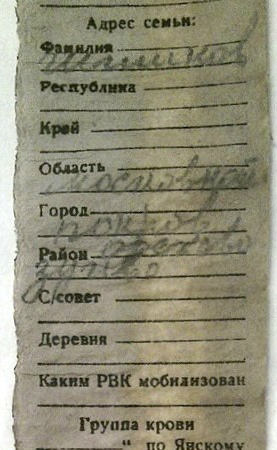 Адрес семьи:
Фамилия
Шашков
Республика
Край
Область
Московской
Город
Район
С/совет
Деревня
Каким РВК мобилизован
Группа крови
" по Янскому